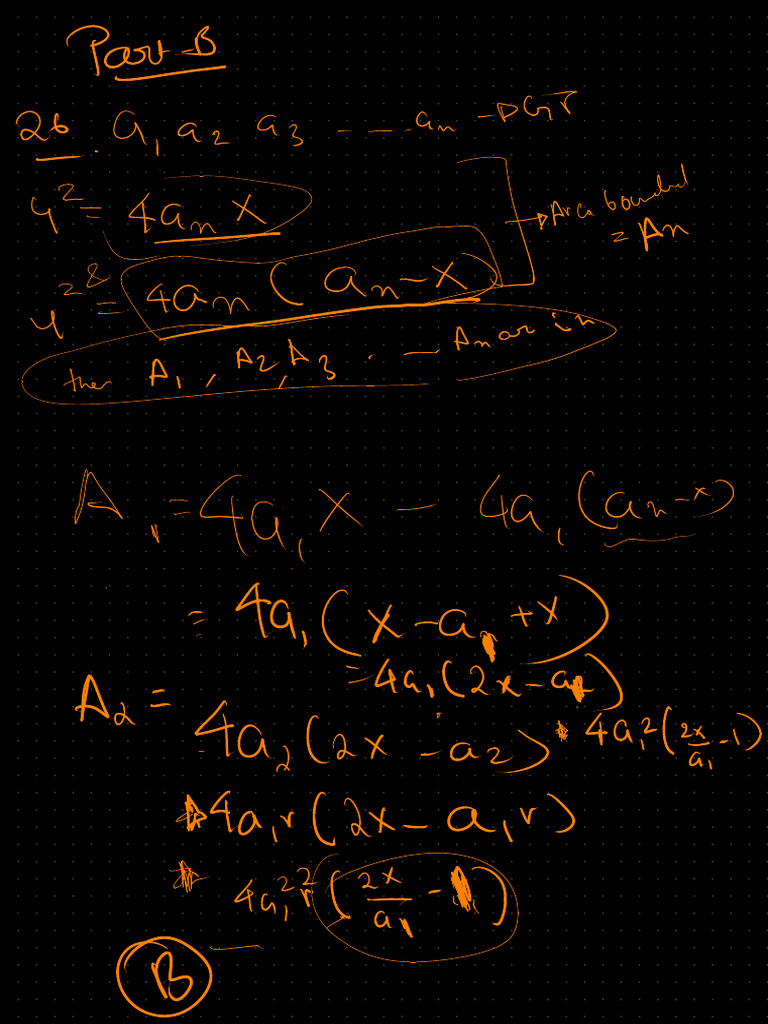 Part-B
26. a₁ a₂ a₃ - - - - aₙ → GP
y² = 4aₙ x
Area bounded = Aₙ
&
y² = 4aₙ (aₙ - x)
then A₁, A₂, A₃ . - - Aₙ ar in
A₁ = 4a₁x - 4a₁(aₙ - x)
= 4a₁(x - a₁ + x)
= 4a₁(2x - a₁)
A₂ = 4a₂(2x - a₂)
4a₁²(2x/a₁ - 1)
4a₁r(2x - a₁r)
4a₁²r²(2x/a₁ - 1)
B